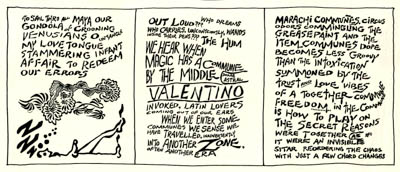 TO SAIL THRU MAYA OUR
GONDOLA CROONING
VENUSIANS
MY LOVE TONGUE
STAMMERING INFANT
AFFAIR TO REDEEM
OUR ERRORS
OUT LOUD??? WHO DREAMS
WHO CARRIES WANDS
THE HUM
WE HEAR WHEN
MAGIC HAS A COMMUNE
BY THE MIDDLE
ASTRAL
VALENTINO
INVOKED, LATIN LOVERS
COMING OUT OF OUR EARS
WHEN WE ENTER SOME
COMMUNES WE SENSE WE
HAVE TRAVELLED,
INTO ANOTHER ZONE,
OFTEN ANOTHER ERA
MARACHI COMMUNES, CIRCUS
ODORS COMMINGLING THE
GREASEPAINT AND THE
ITEM, COMMUNES DOPE
BECOMES LESS GROOVY
THAN THE INTOXICATION
SUMMONED BY THE
TRUST AND LOVE VIBES
OF A TOGETHER COMMUNE
FREEDOM, IN THE COMMUNE
IS HOW TO PLAY ON
THE SECRET REASONS
WERE TOGETHER AS
IT WERE AN INVISIBLE
SITAR REORDERING THE CHAOS
WITH JUST A FEW CHORD CHANGES